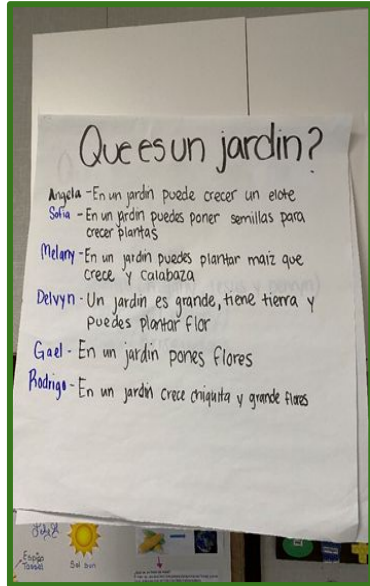 Que es un jardin?
Angela - En un jardin puede crecer un elote
Sofia - En un jardin puedes poner semillas para
crecer plantas
Melany - En un jardin puedes plantar maiz que
crece y calabaza
Delvyn - Un jardin es grande, tiene tierra y
puedes plantar flor
Gael - En un jardin pones flores
Rodrigo - En un jardin crece chiquita y grande flores
Espiga
Sol sun